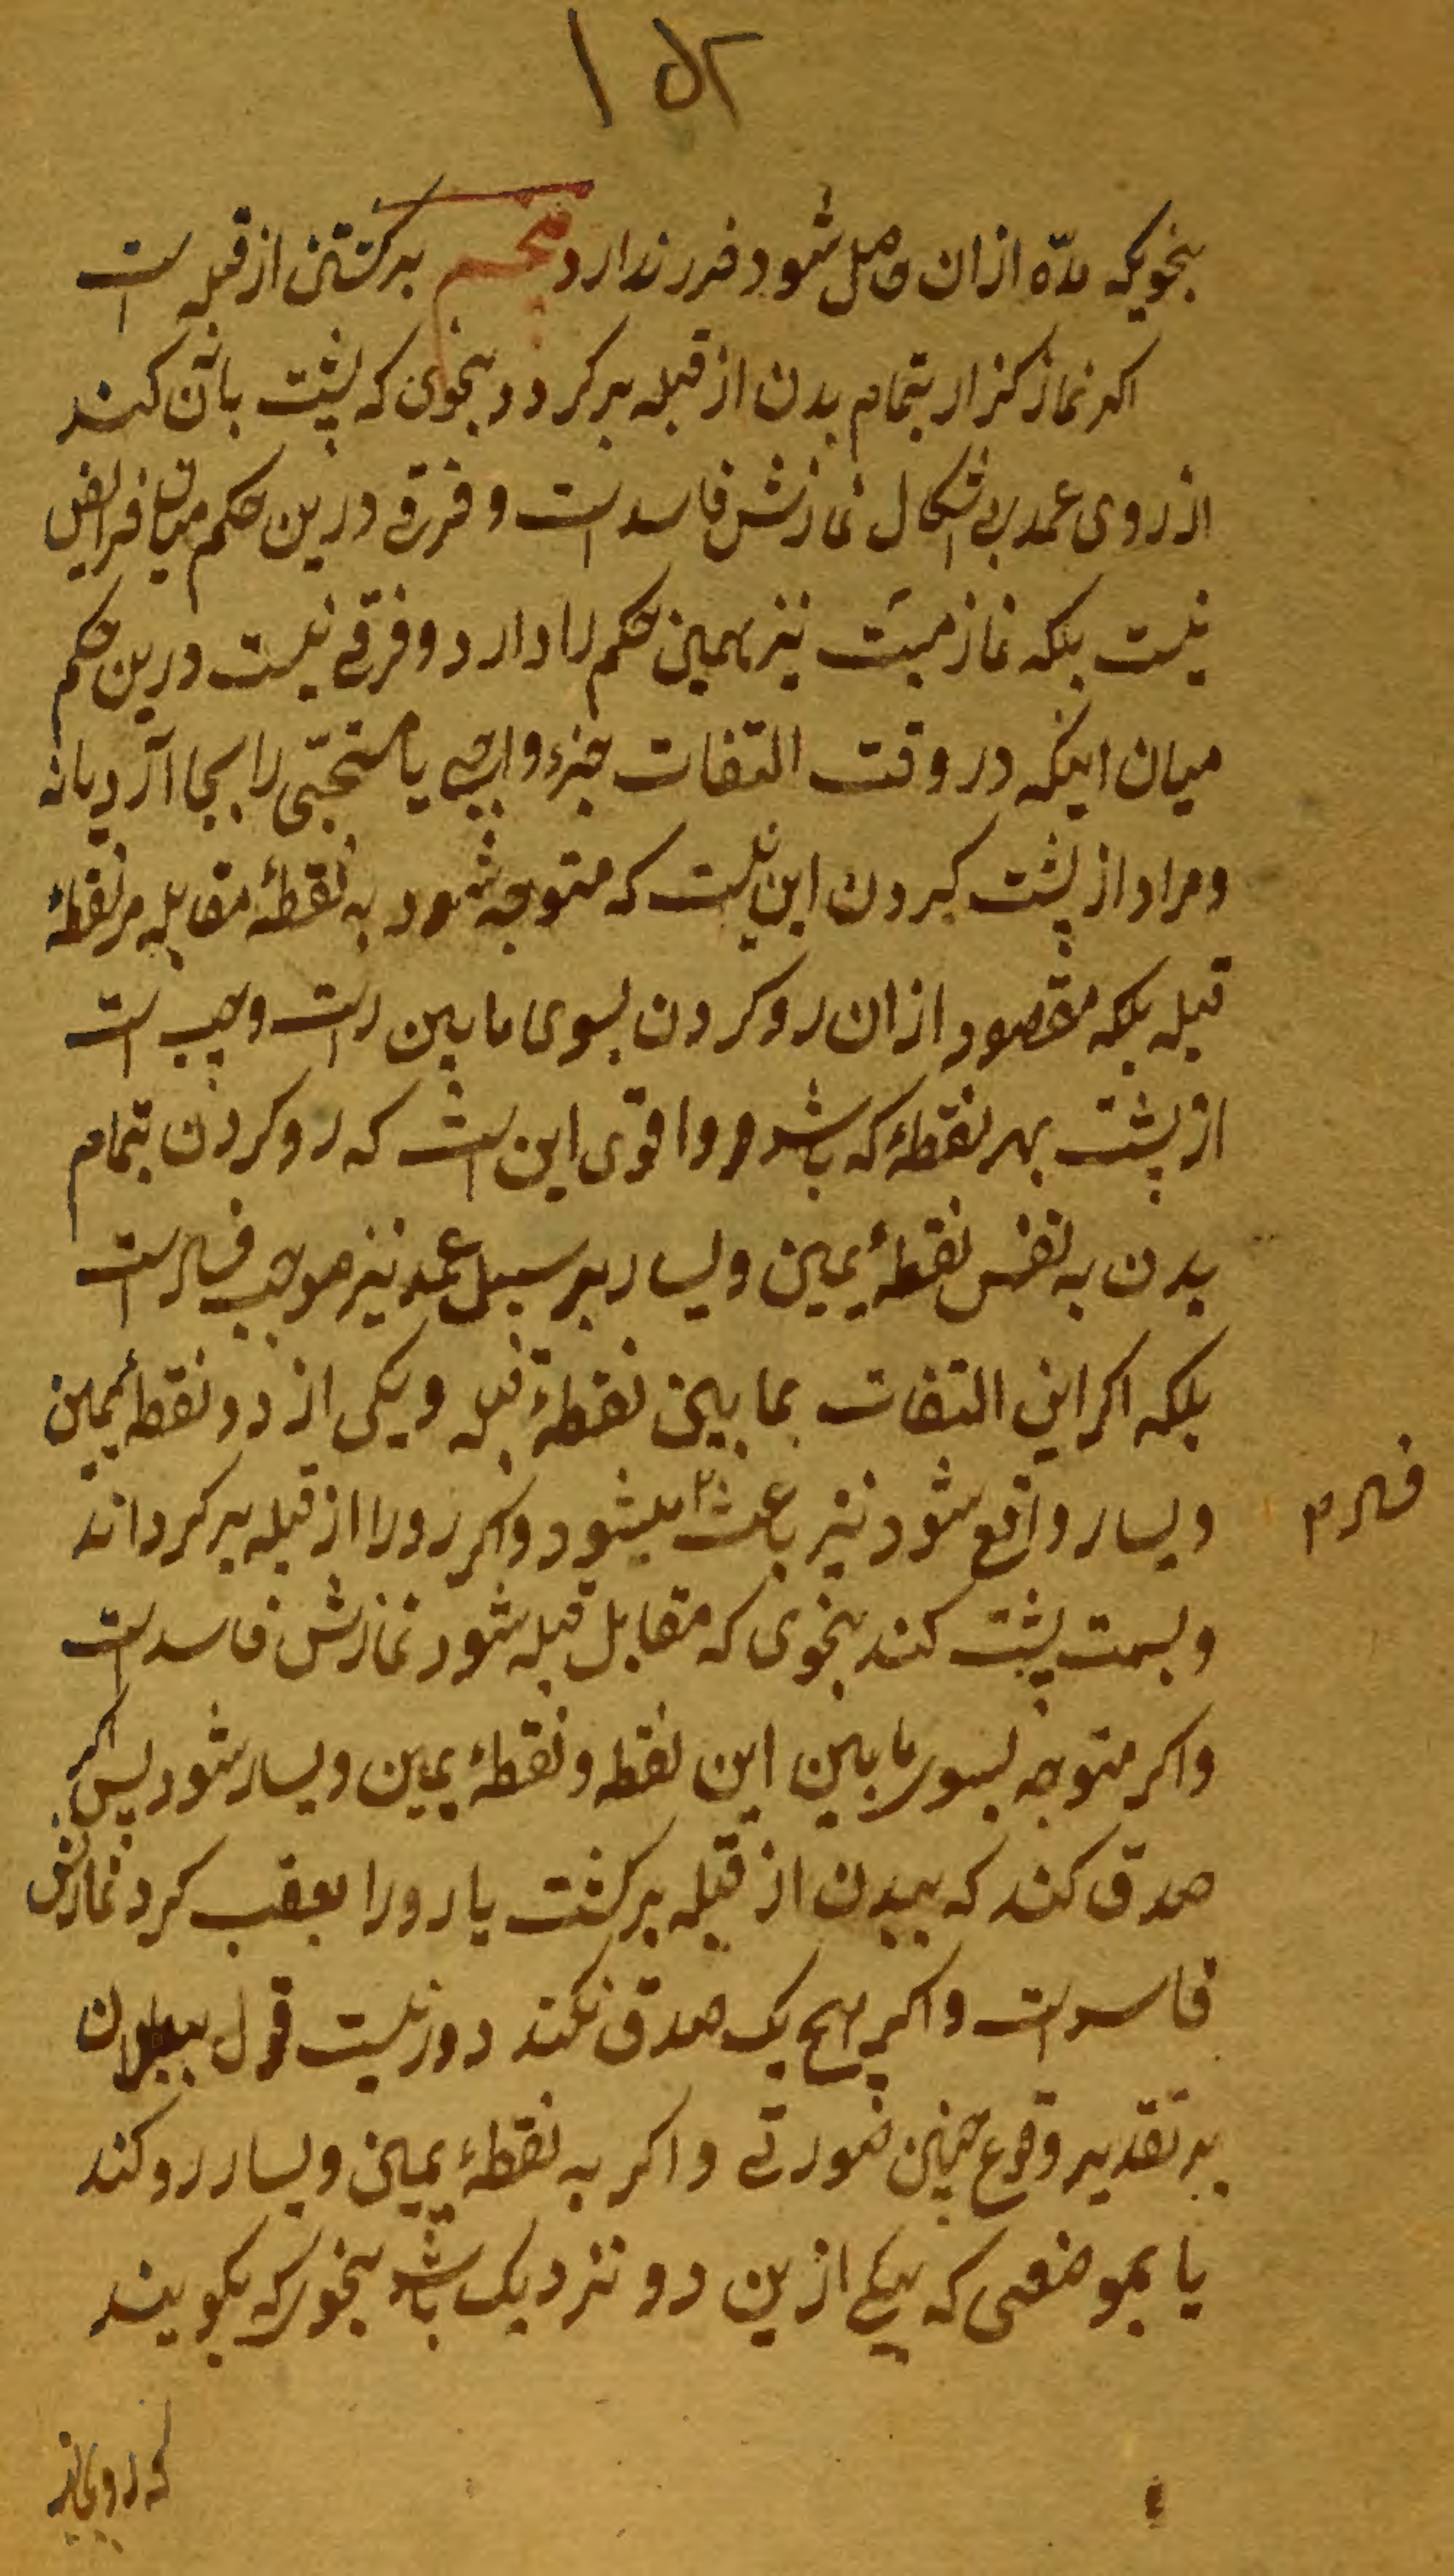 ۱۵۲
بنحویکه مدّه ازان حاصل شود ضرر ندارد پنجم برکشتن از قبله است
اکر نماز کزار بتمام بدن از قبله برکردد بنحوی که پشت بآن کند
از روی عمد بی اشکال نمازش فاسد است و فرقی درین حکم میان فرایض
نیست بلکه نماز میّت نیز همین حکم را دارد و فرقی نیست درین حکم
میان اینکه در وقت التفات جزء واجبی یا مستحبّی را بجا آرد یا نه
و مراد از پشت کردن این نیست که متوجه شود به نقطهٔ مقابله مر نقطهٔ
قبله بلکه مقصود ازان رو کردن بسوی مابین راست و چپ است
از پشت بهر نقطهٔ که باشد و اقوی این است که رو کردن بتمام
بدن به نفس نقطهٔ یمین و یسار بر سبیل عمد نیز موجب فساد است
بلکه اکر این التفات بما بین نقطهٔ قبله و یکی از دو نقطهٔ یمین
و یسار واقع شود نیز باعث میشود و اکر رو را از قبله برکرداند
فساد م
و بسمت پشت کند بنحوی که مقابل قبله شود نمازش فاسد است
و اکر متوجه بسوی مابین این نقطه و نقطهٔ یمین و یسار شود پس اکر
صدق کند که ببدن از قبله برکشت یا رو را بعقب کرد نمازش
فاسد است و اکر هیچ یک صدق نکند دور نیست قول ببطلان
بر تقدیر وقوع چنین صورتی و اکر به نقطهٔ یمین و یسار رو کند
یا بموضعی که بیکی ازین دو نزدیک باشد بنحوی که بکویند
که روی از